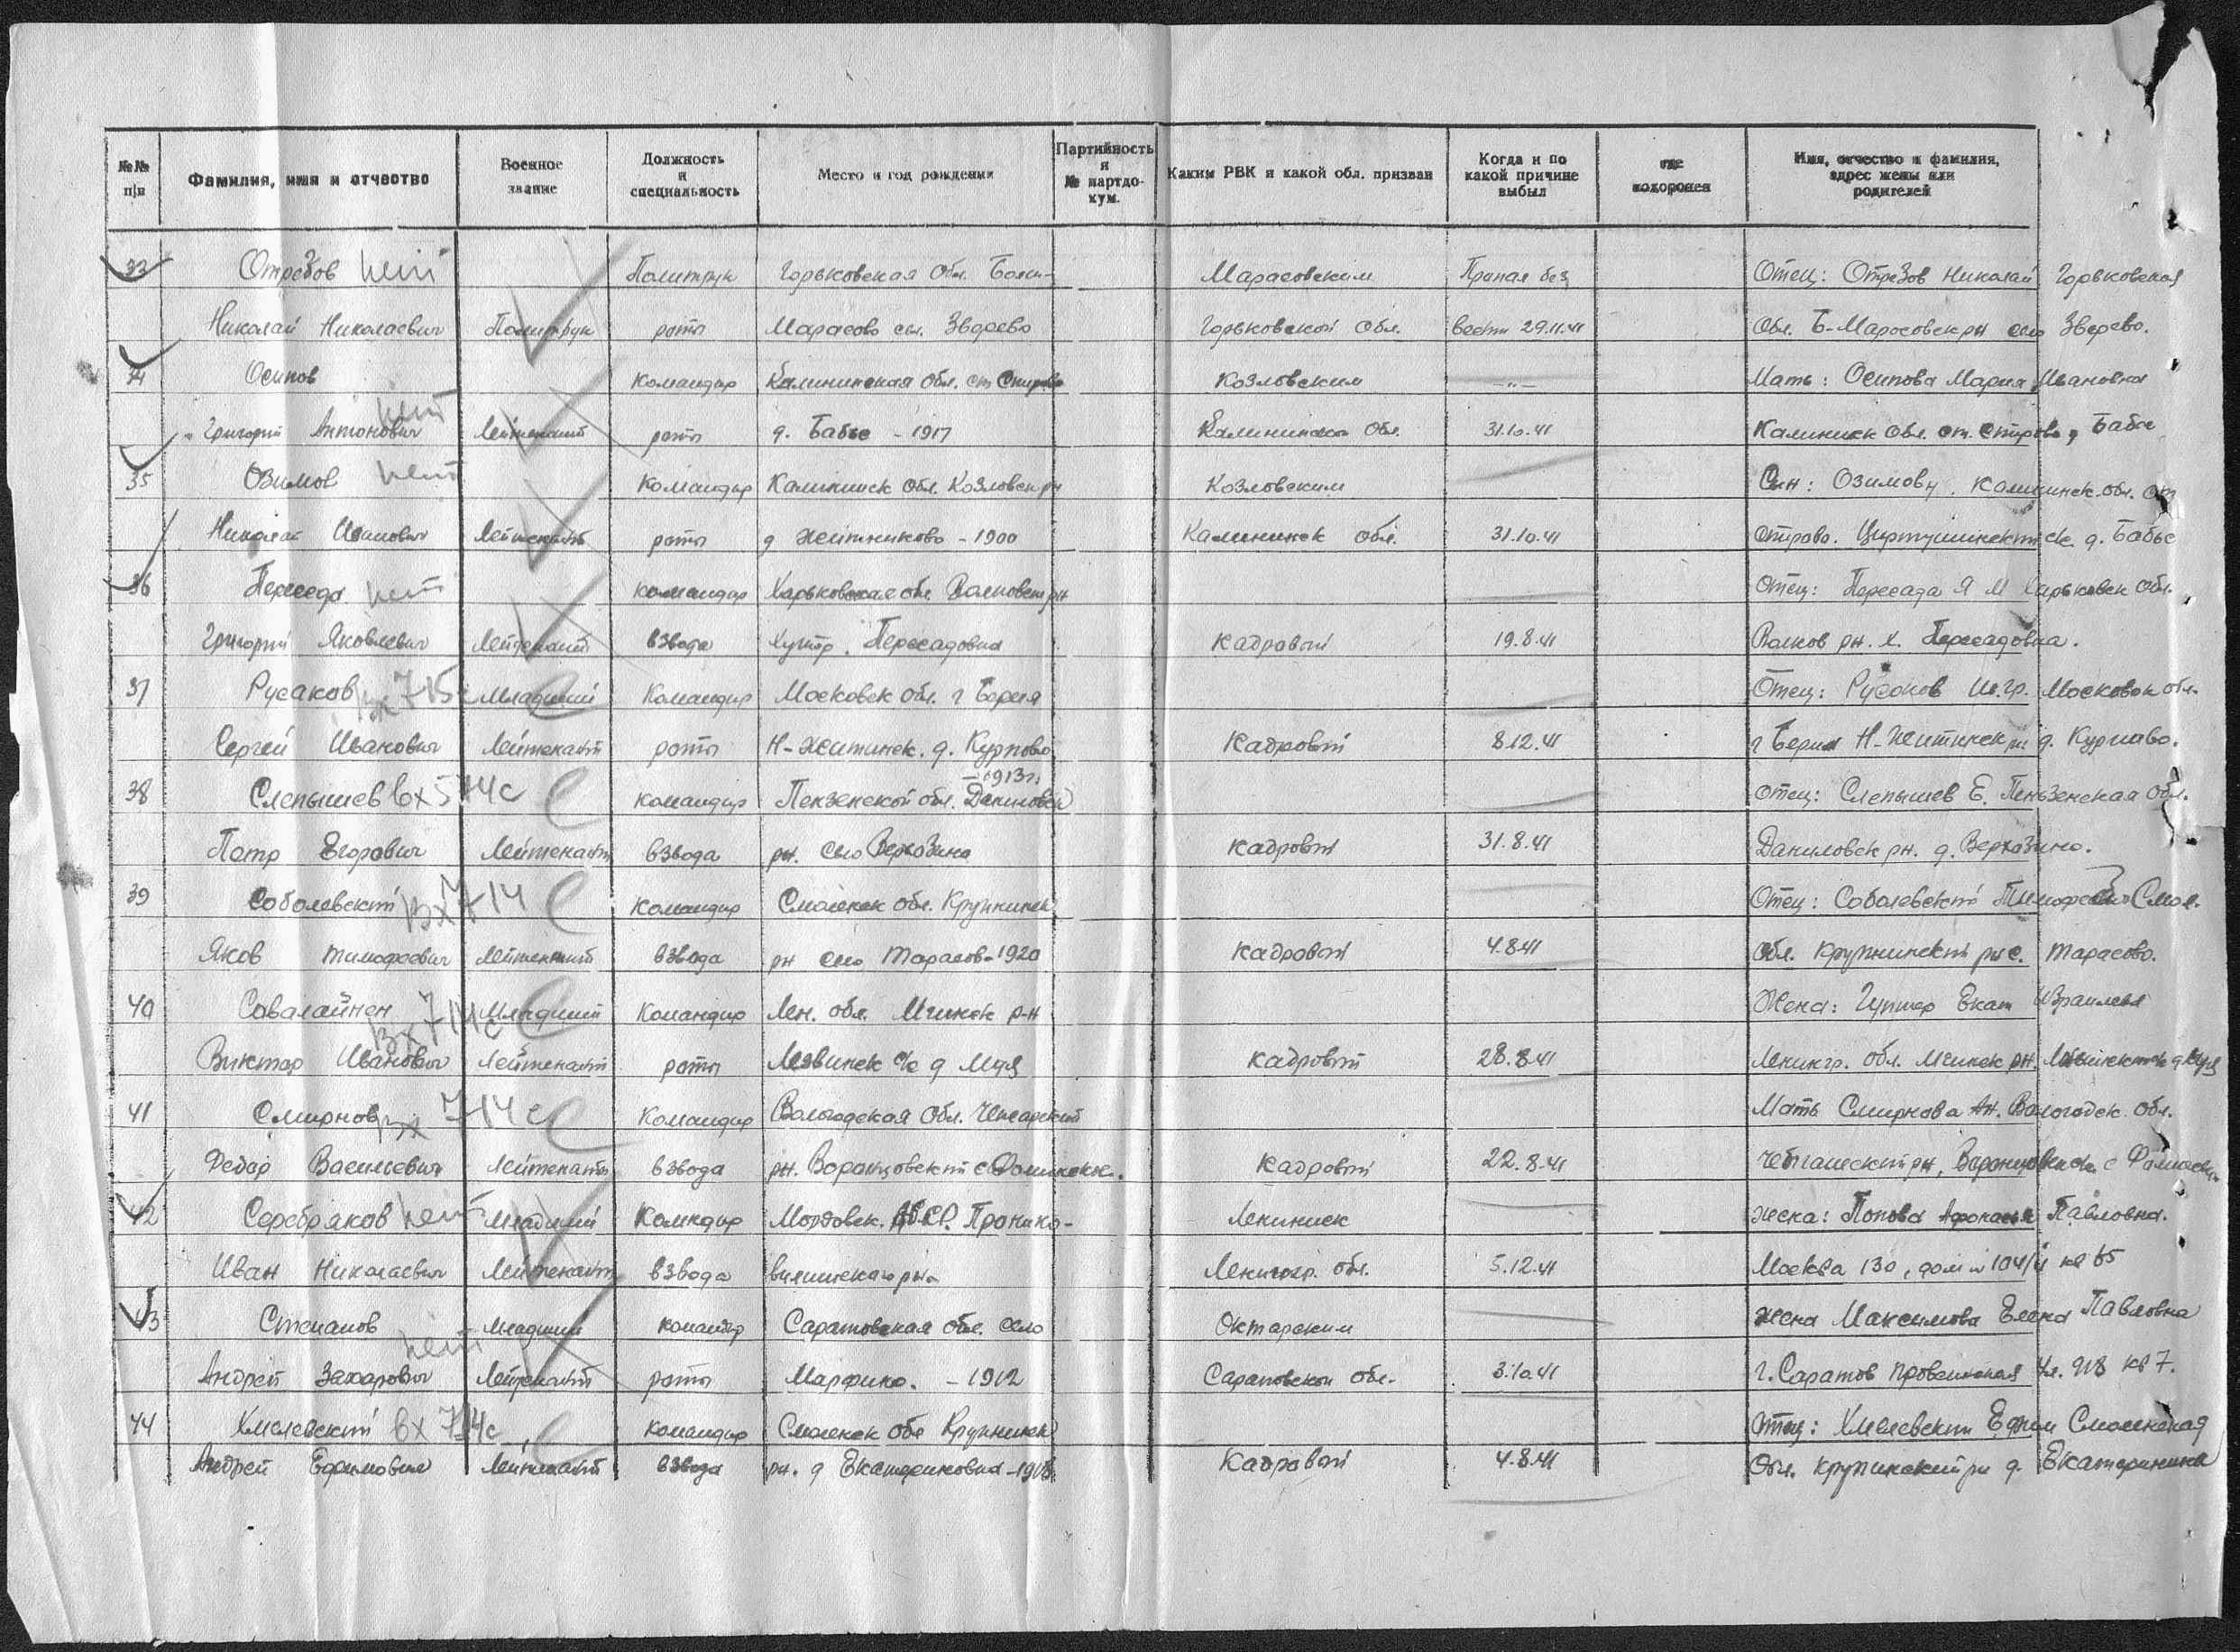 №№ п/п | Фамилия, имя и отчество | Военное звание | Должность и специальность | Место и год рождения | Партийность и № партдокум. | Каким РВК и какой обл. призван | Когда и по какой причине выбыл | где похоронен | Имя, отчество и фамилия, адрес жены или родителей
33 Отрезов нет Политрук Горьковская Обл. Марасовским Пропал без Отец: Отрезов Николай Горьковская
Николай Николаевич Политрук роты Марасово сел. Зверево Горьковской Обл. вести 29.11.41 Обл. Б-Маросовск рн село Зверево.
34 Осипов Командир Калининская Обл. ст Козловским -"- Мать: Осипова Мария Ивановна
Григорий Антонович нет Лейтенант роты д. Бабье - 1917 Калининской Обл. 31.10.41 Калининск Обл. ст. Бабье
35 Озимов нет Командир Калининск Обл. Козловск рн Козловским Сын: Озимову. Калининск. обл. ст
Николай Иванович Лейтенант роты д Житниково - 1900 Калининск обл. 31.10.41 д. Бабье
36 Переседа нет Командир Харьковская обл. Отец: Пересада Я М Харьковск Обл.
Григорий Яковлевич Лейтенант взвода Хутор. Пересадовка Кадровой 19.8.41 Валков рн. х. Пересадовка.
37 Русаков Вх 715с Младший Командир Московск Обл. г Верея Отец: Русаков Ив. гр. Московск обл.
Сергей Иванович Лейтенант роты Н-Житинск. д. Курново Кадровой 8.12.41 г Верия Н-Житинск рн д. Курново.
- 1913 г.
38 Слепышев вх 574с Командир Пензенской обл. Даниловск Отец: Слепышев Е. Пеньзенская Обл.
Петр Егорович Лейтенант взвода рн. село Верхозино Кадровой 31.8.41 Даниловск рн. д. Верхозино.
39 Соболевский Вх 714 Командир Смоленск обл. Крупкинск Отец: Соболевский Тимофей Смол.
Яков Тимофеевич Лейтенант взвода рн село Тарасов - 1920 Кадровой 4.8.41 Обл. Крупкинский рн с. Тарасово.
40 Савалайнен Вх 714с Младший Командир Лен. обл. Мгинск р-н Жена: Гуптер Екат Израилевн
Виктор Иванович Лейтенант роты Лезвинск с/с д Муя Кадровой 28.8.41 Ленингр. обл. Мгинск рн.
41 Смирнов вх 714с Командир Вологодская Обл. Мать Смирнова Ан. Вологодск. обл.
Федор Васильевич Лейтенант взвода рн. Воронцовский с Кадровой 22.8.41 рн, Воронцовск с
42 Серебряков нет Младший Командир Мордовск. АССР. Лениниск жена: Попова Павловна.
Иван Николаевич Лейтенант взвода рн. Ленингр. обл. 5.12.41 Москва 130, дом № 104/ кв 65
43 Степанов Младший командир Саратовская обл. село Октарским жена Максимова Елена Павловна
Андрей Захарович нет Лейтенант роты Марфино. - 1912 Саратовской Обл. 3.10.41 г. Саратов ул. кв 7.
44 Хмелевский вх 714с Командир Смоленск обл Крупкинск Отец: Хмелевский Ефим Смоленская
Андрей Ефимович Лейтенант взвода рн. д Екатериновка Кадровой 4.8.41 Обл. Крупкинский рн д. Екатеринина